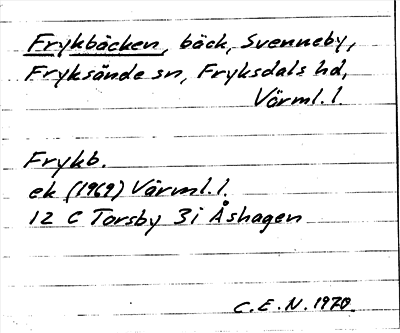 Frykbäcken, bäck, Svenneby,
Fryksände sn, Fryksdals hd,
Värml. l.
Frykb.
ek (1969) Värml. l.
12 C Torsby 3i Åshagen
C.E.N. 1970.